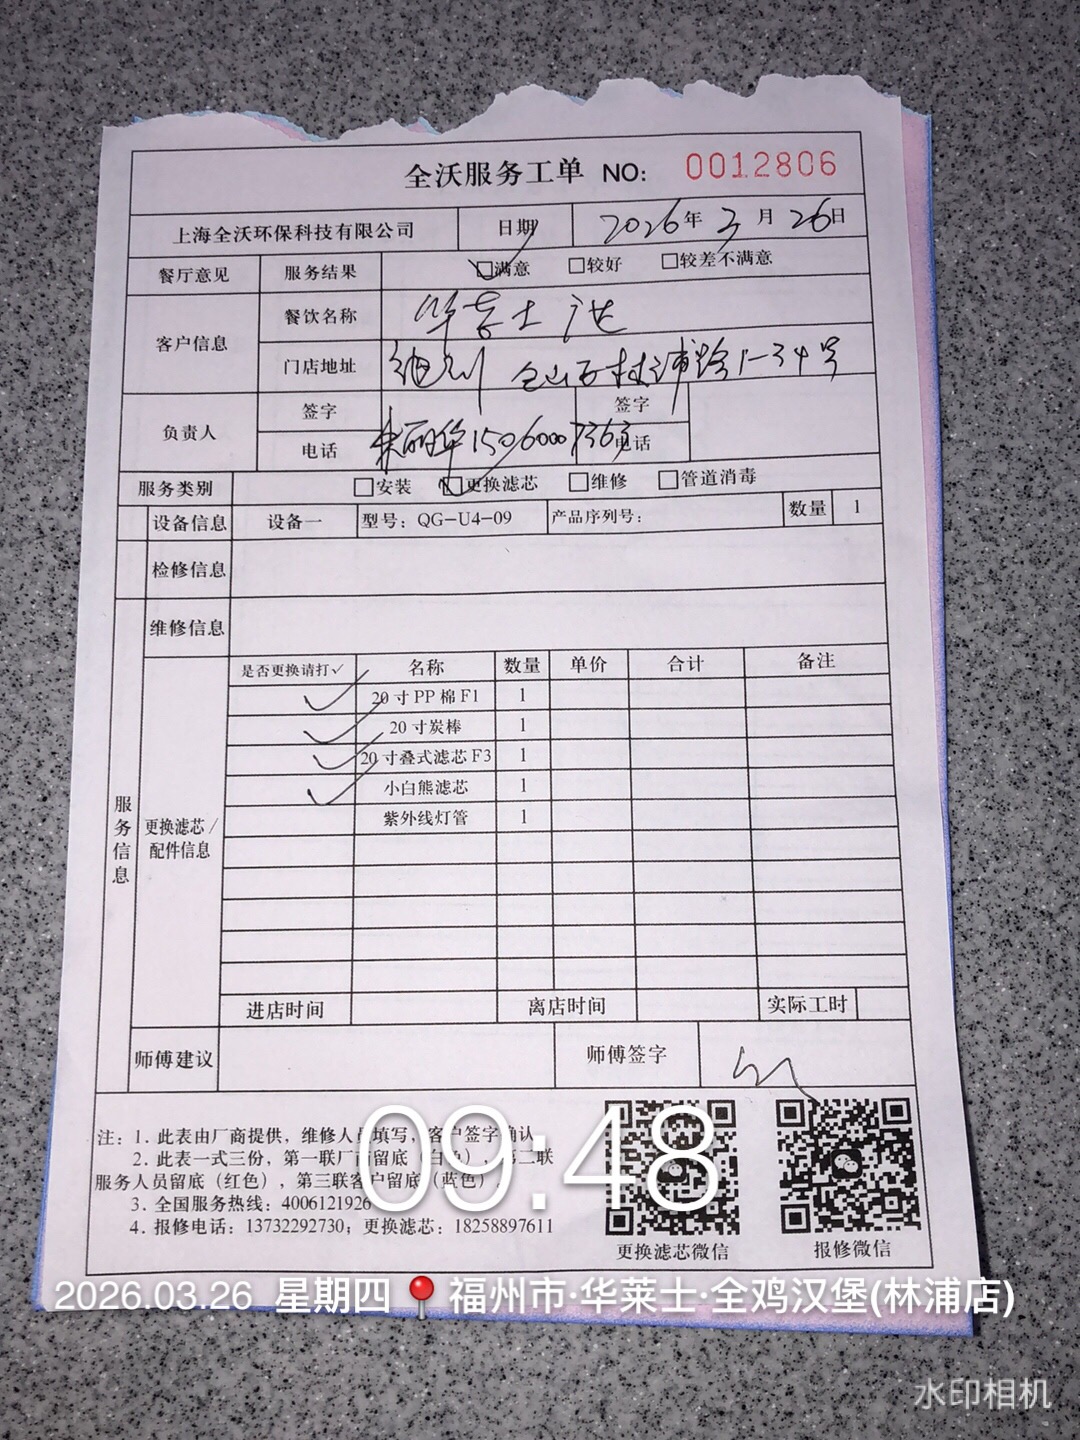 全沃服务工单 NO: 0012806
上海全沃环保科技有限公司 日期 2026年3月26日
餐厅意见 服务结果 □满意 □较好 □较差不满意
客户信息 餐饮名称 华莱士
门店地址 1-34号
负责人 签字 签字
电话 丽华 电话
服务类别 □安装 □更换滤芯 □维修 □管道消毒
设备信息 设备一 型号：QG-U4-09 产品序列号： 数量 1
检修信息
维修信息
是否更换请打✓ 名称 数量 单价 合计 备注
✓ 20寸PP棉F1 1
✓ 20寸炭棒 1
✓ 20寸叠式滤芯F3 1
✓ 小白熊滤芯 1
紫外线灯管 1
服务信息
更换滤芯/
配件信息
进店时间 离店时间 实际工时
师傅建议 师傅签字
注：1. 此表由厂商提供，维修人员填写，客户签字确认
2. 此表一式三份，第一联厂商留底（白色），第二联
服务人员留底（红色），第三联客户留底（蓝色）.
3. 全国服务热线：4006121926
4. 报修电话：13732292730；更换滤芯：18258897611
更换滤芯微信 报修微信
09:48
2026.03.26 星期四 福州市·华莱士·全鸡汉堡(林浦店)
水印相机